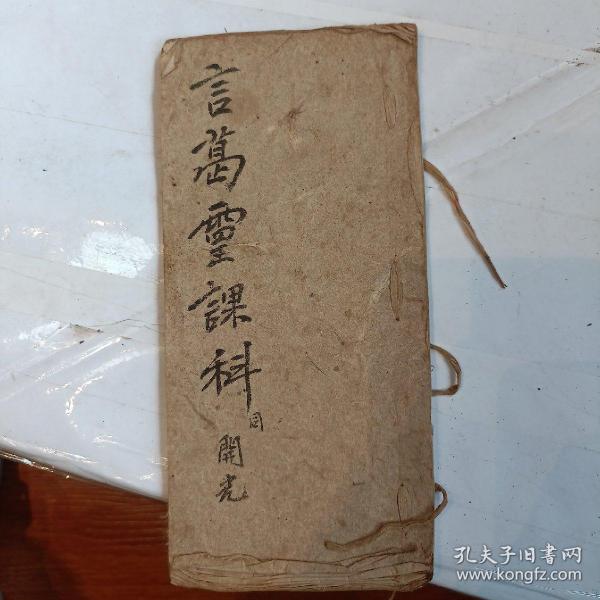 言葛霊課科
同開光
孔夫子旧書网
www.kongfz.com